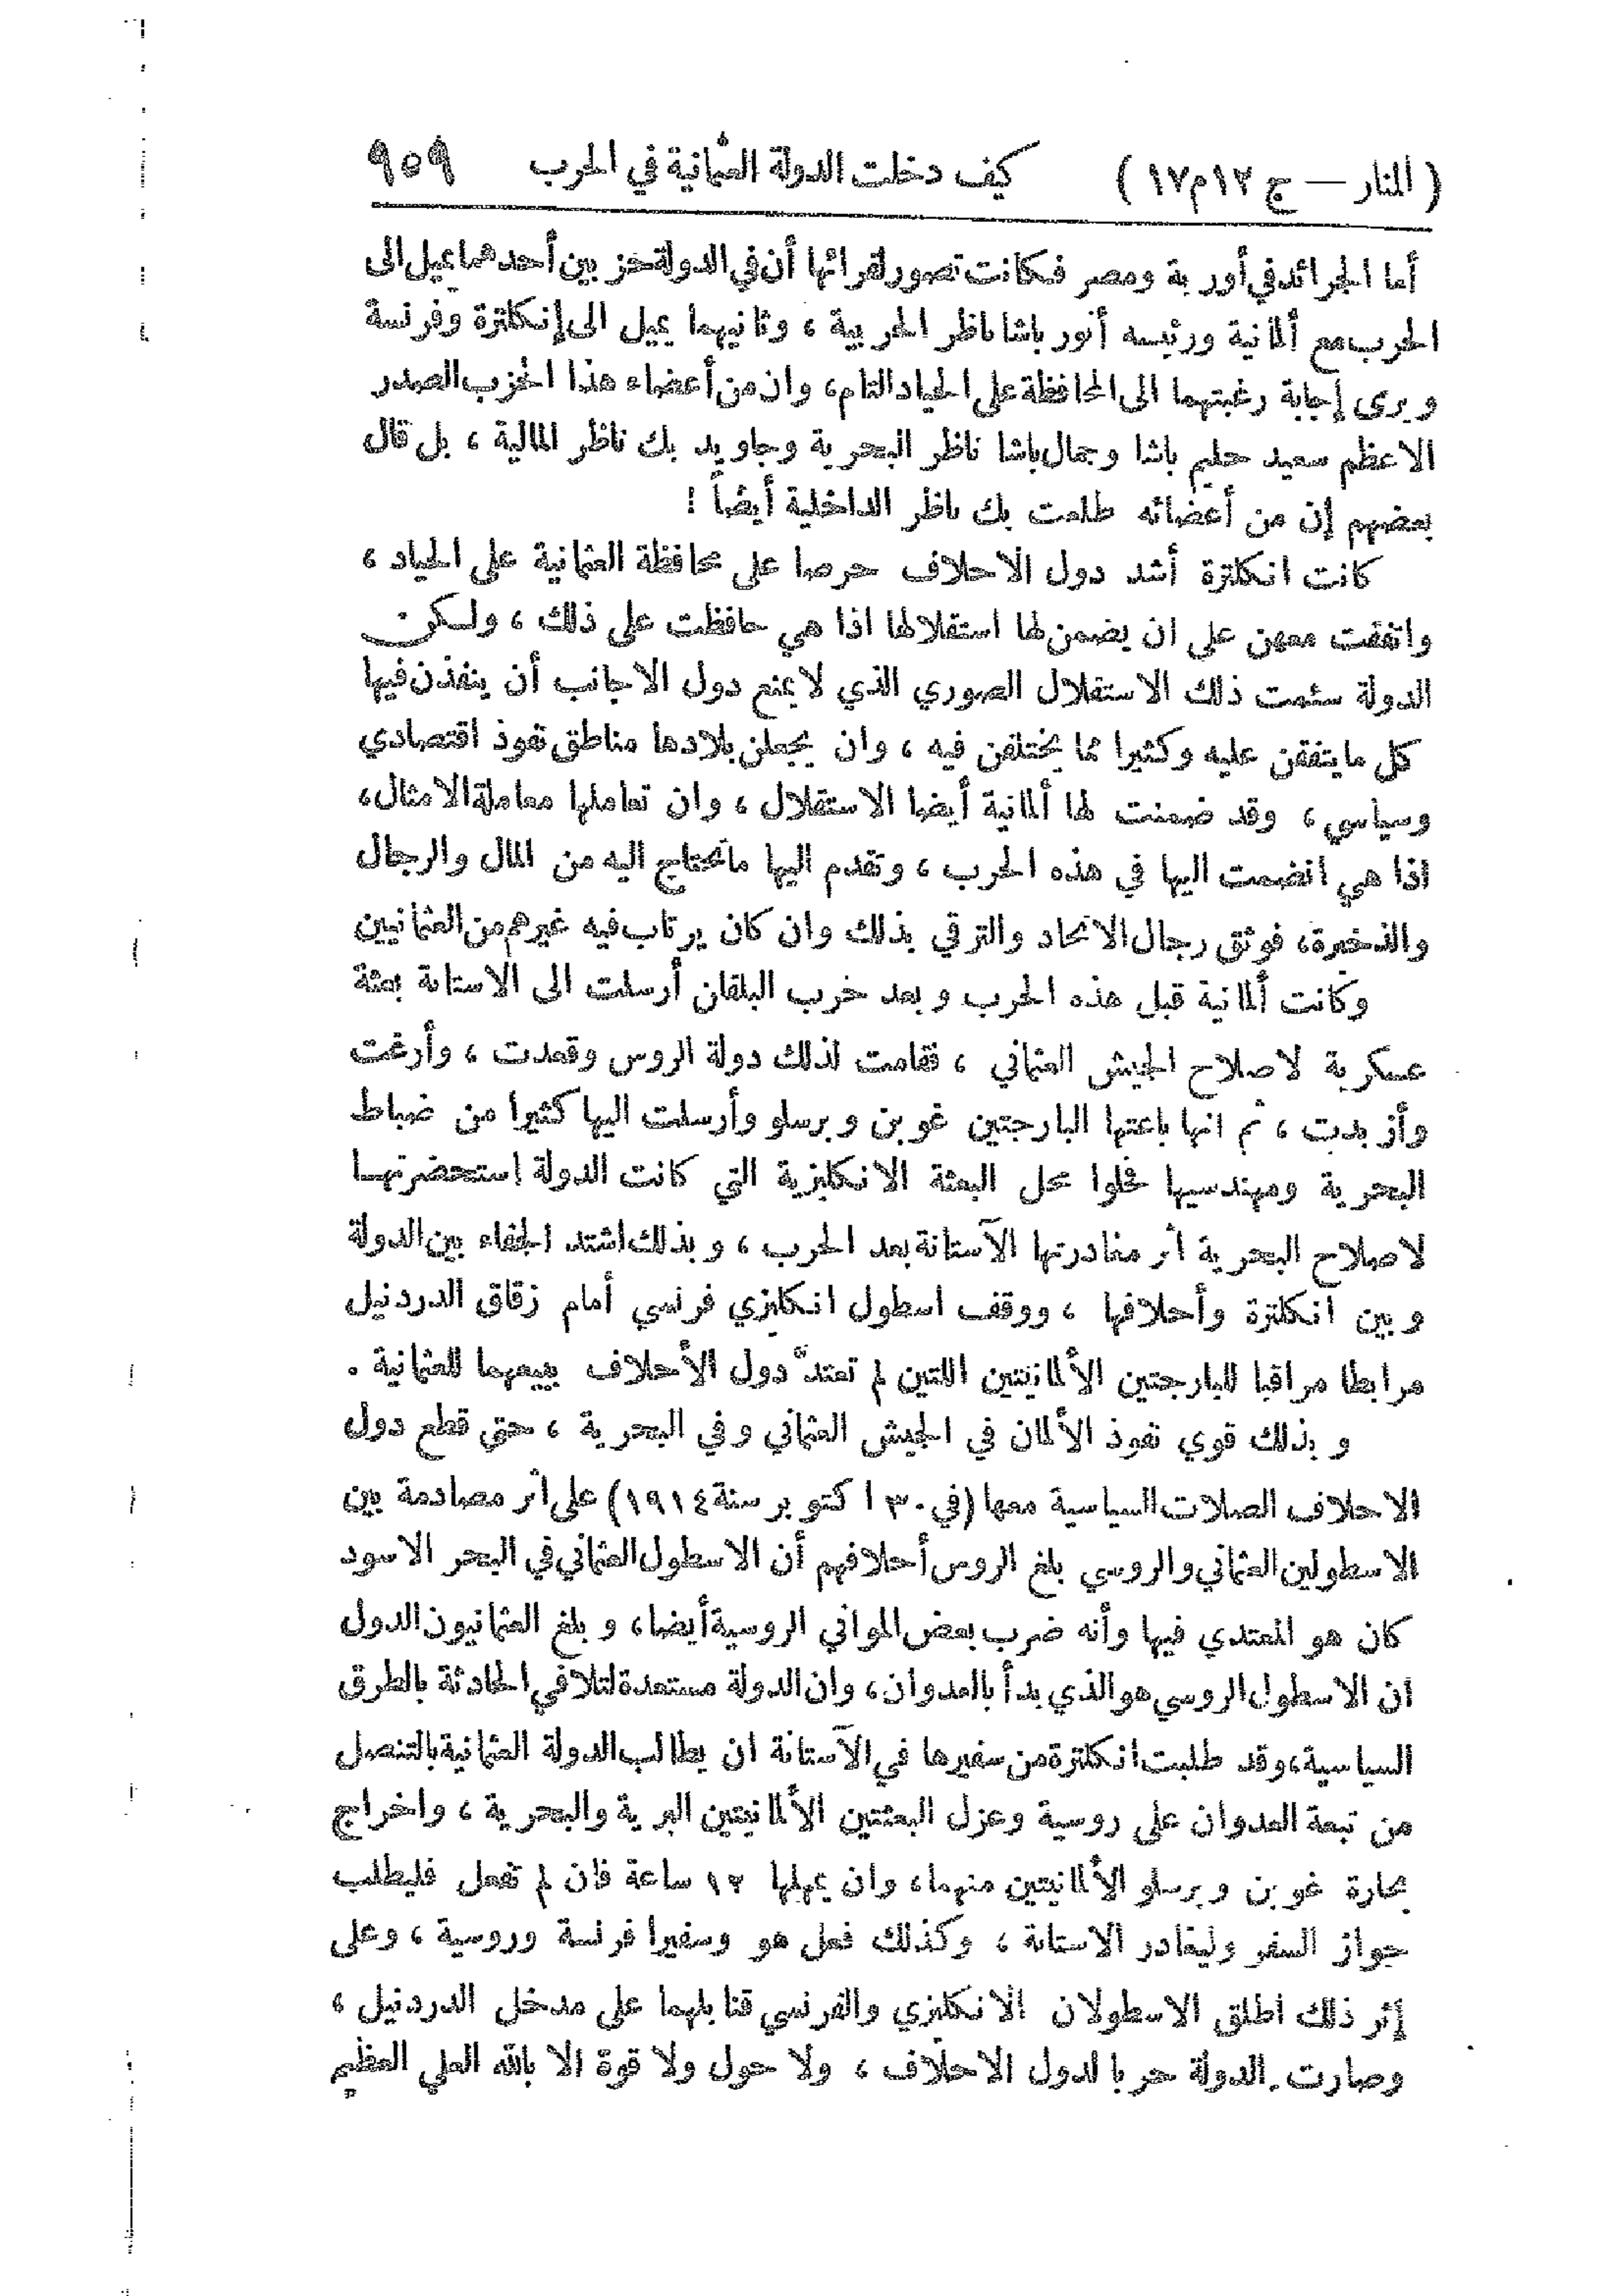 (المنار — ج ١٢ م ١٧) كيف دخلت الدولة العثمانية في الحرب ٩٥٩
أما الجرائد في أوربة ومصر فكانت تصور لقرائها أن في الدولة حزبين أحدهما يميل الى
الحرب مع ألمانية ورئيسه أنور باشا ناظر الحربية ، وثانيهما يميل الى إنكلترة وفرنسة
ويرى إجابة رغبتهما الى المحافظة على الحياد التام، وان من أعضاء هذا الحزب الصدر
الاعظم سعيد حليم باشا وجمال باشا ناظر البحرية وجاويد بك ناظر المالية ، بل قال
بعضهم إن من أعضائه طلعت بك ناظر الداخلية أيضاً !
كانت انكلترة أشد دول الاحلاف حرصا على محافظة العثمانية على الحياد ،
واتفقت معهن على ان يضمن لها استقلالها اذا هي حافظت على ذلك ، ولكن
الدولة سئمت ذلك الاستقلال الصوري الذي لا يمنع دول الاجانب أن ينفذن فيها
كل ما يتفقن عليه وكثيرا مما يختلفن فيه ، وان يجعلن بلادها مناطق نفوذ اقتصادي
وسياسي ، وقد ضمنت لها ألمانية أيضا الاستقلال ، وان تعاملها معاملة الامثال،
اذا هي انضمت اليها في هذه الحرب ، وتقدم اليها ما تحتاج اليه من المال والرجال
والذخيرة، فوثق رجال الاتحاد والترقي بذلك وان كان يرتاب فيه غيرهم من العثمانيين
وكانت ألمانية قبل هذه الحرب وبعد حرب البلقان أرسلت الى الاستانة بعثة
عسكرية لاصلاح الجيش العثماني ، فقامت لذلك دولة الروس وقعدت ، وأرغت
وأزبدت ، ثم انها باعتها البارجتين غوبن وبرسلو وأرسلت اليها كثيرا من ضباط
البحرية ومهندسيها فحلوا محل البعثة الانكليزية التي كانت الدولة استحضرتها
لاصلاح البحرية اثر مغادرتها الآستانة بعد الحرب ، وبذلك اشتد الجفاء بين الدولة
وبين انكلترة وأحلافها ، ووقف اسطول انكليزي فرنسي أمام زقاق الدردنيل
مرابطا مراقبا للبارجتين الألمانيتين اللتين لم تعتدّ دول الأحلاف ببيعهما للعثمانية .
وبذلك قوي نفوذ الألمان في الجيش العثماني وفي البحرية ، حتى قطع دول
الاحلاف الصلات السياسية معها (في ٣٠ اكتوبر سنة ١٩١٤) على اثر مصادمة بين
الاسطولين العثماني والروسي بلغ الروس أحلافهم أن الاسطول العثماني في البحر الاسود
كان هو المعتدي فيها وأنه ضرب بعض المواني الروسية أيضا، وبلغ العثمانيون الدول
ان الاسطول الروسي هو الذي بدأ بالعدوان، وان الدولة مستعدة لتلافي الحادثة بالطرق
السياسية، وقد طلبت انكلترة من سفيرها في الآستانة ان يطالب الدولة العثمانية بالتنصل
من تبعة العدوان على روسية وعزل البعثتين الألمانيتين البرية والبحرية ، واخراج
بحارة غوبن وبرسلو الألمانيتين منهما، وان يمهلها ١٢ ساعة فان لم تفعل فليطلب
جواز السفر وليغادر الاستانة ، وكذلك فعل هو وسفيرا فرنسة وروسية ، وعلى
إثر ذلك اطلق الاسطولان الانكليزي والفرنسي قنابلهما على مدخل الدردنيل ،
وصارت الدولة حربا لدول الاحلاف ، ولا حول ولا قوة الا بالله العلي العظيم